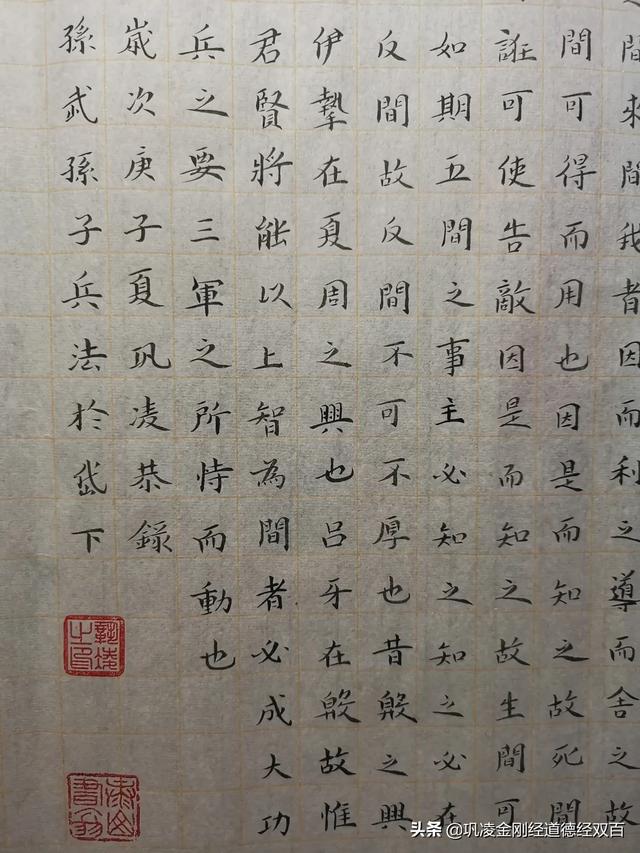 間來間我者因而利之導而舍之故
間可得而用也因是而知之故死間
誑可使告敵因是而知之故生間可
如期五間之事主必知之知之必在
反間故反間不可不厚也昔殷之興
伊摯在夏周之興也呂牙在殷故惟
君賢將能以上智為間者必成大功
兵之要三軍之所恃而動也
歲次庚子夏巩凌恭錄
孫武孫子兵法於岱下
头条 @巩凌金刚经道德经双百